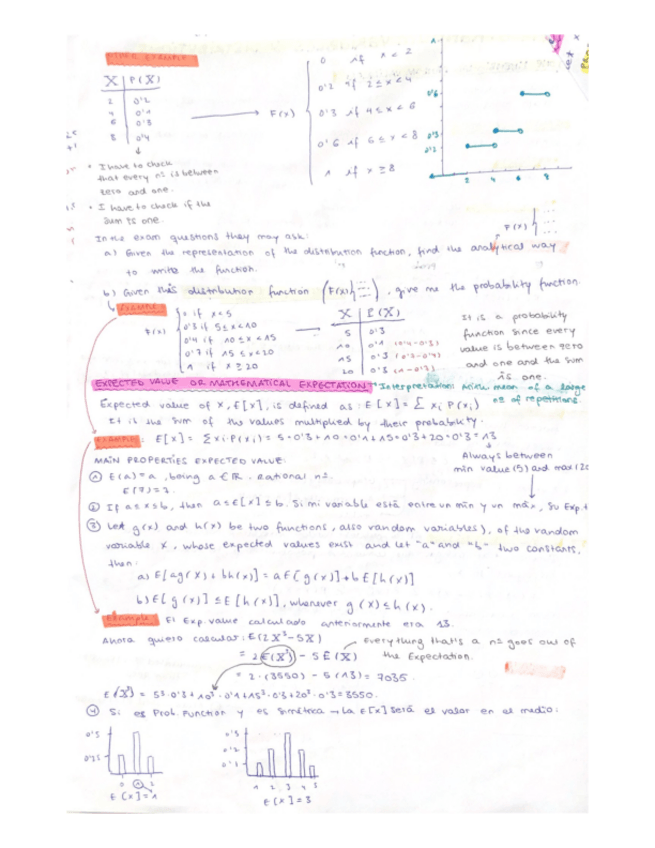 OTHER EXAMPLE
X | P(X)
2 0'2
4 0'1
6 0'3
8 0'4
F(x)
0 if x < 2
0'2 if 2 ≤ x < 4
0'3 if 4 ≤ x < 6
0'6 if 6 ≤ x < 8
1 if x ≥ 8
1
0'6
0'3
0'2
2 4 6 8
• I have to check
that every nº is between
zero and one.
• I have to check if the
sum is one.
In the exam questions they may ask:
F(x)
a) Given the representation of the distribution function, find the analytical way
to write the function.
b) Given this distribution function (F(x){ ), give me the probability function.
Example
F(x)
0 if x < 5
0'3 if 5 ≤ x < 10
0'4 if 10 ≤ x < 15
0'7 if 15 ≤ x < 20
1 if x ≥ 20
X | P(X)
5 0'3
10 0'1 (0'4-0'3)
15 0'3 (0'7-0'4)
20 0'3 (1-0'7)
It is a probability
function since every
value is between zero
and one and the sum
is one.
EXPECTED VALUE OR MATHEMATICAL EXPECTATION
Interpretation: mean of a large
nº of repetitions.
Expected value of X, E[X], is defined as: E[X] = Σ xi P(xi)
It is the sum of the values multiplied by their probability.
Example: E[X] = Σ xi P(xi) = 5·0'3+10·0'1+15·0'3+20·0'3=13
MAIN PROPERTIES EXPECTED VALUE:
Always between
min value (5) and max (20
① E(a)=a, being a ∈ ℝ. Rational nº.
E(3)=3.
② If a≤x≤b, then a≤E[X]≤b. Si mi variable está entre un mín y un máx, su Exp.
③ Let g(x) and h(x) be two functions, also random variables), of the random
variable X, whose expected values exist and let "a" and "b" two constants,
then:
a) E[ag(x)+bh(x)] = aE[g(x)]+bE[h(x)]
b) E[g(x)] ≤ E[h(x)], whenever g(x) ≤ h(x).
Example El Exp. value calculado anteriormente era 13.
Ahora quiero calcular: E(2X³-5X)
Everything that's a nº goes out of
the Expectation.
= 2E(X³) - 5E(X)
= 2·(3550) - 5(13) = 7035.
E(X³) = 5³·0'3+10³·0'1+15³·0'3+20³·0'3=3550.
④ Si es Prob. Function y es simétrica → La E[X] será el valor en el medio:
0'5
0'25
0 1 2
E[X]=1
0'3
0'2
0'1
1 2 3 4 5
E[X]=3